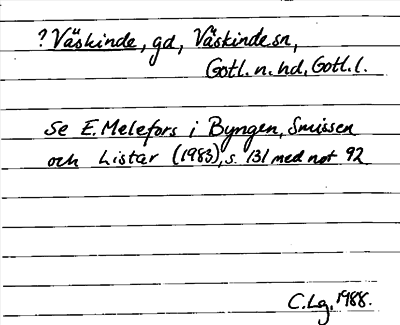 ? Väskinde, gd, Väskinde sn,
Gotl. n. hd, Gotl. l.
Se E. Melefors i Byngen, Smissen
och Listar (1983), s. 131 med not 92
C. Lg. 1988.